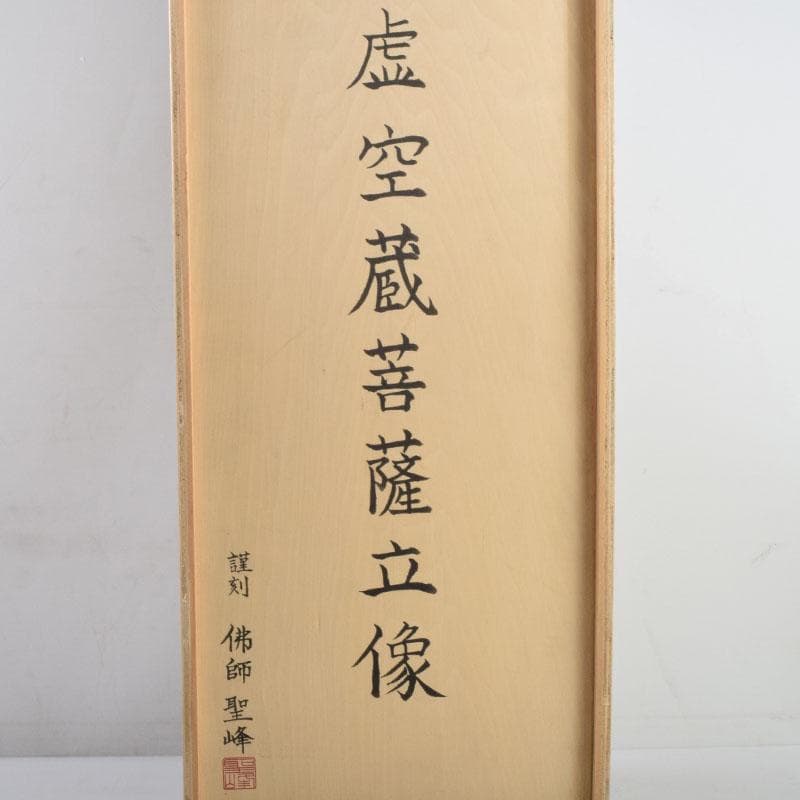 虚空蔵菩薩立像
謹刻 佛師 聖峰